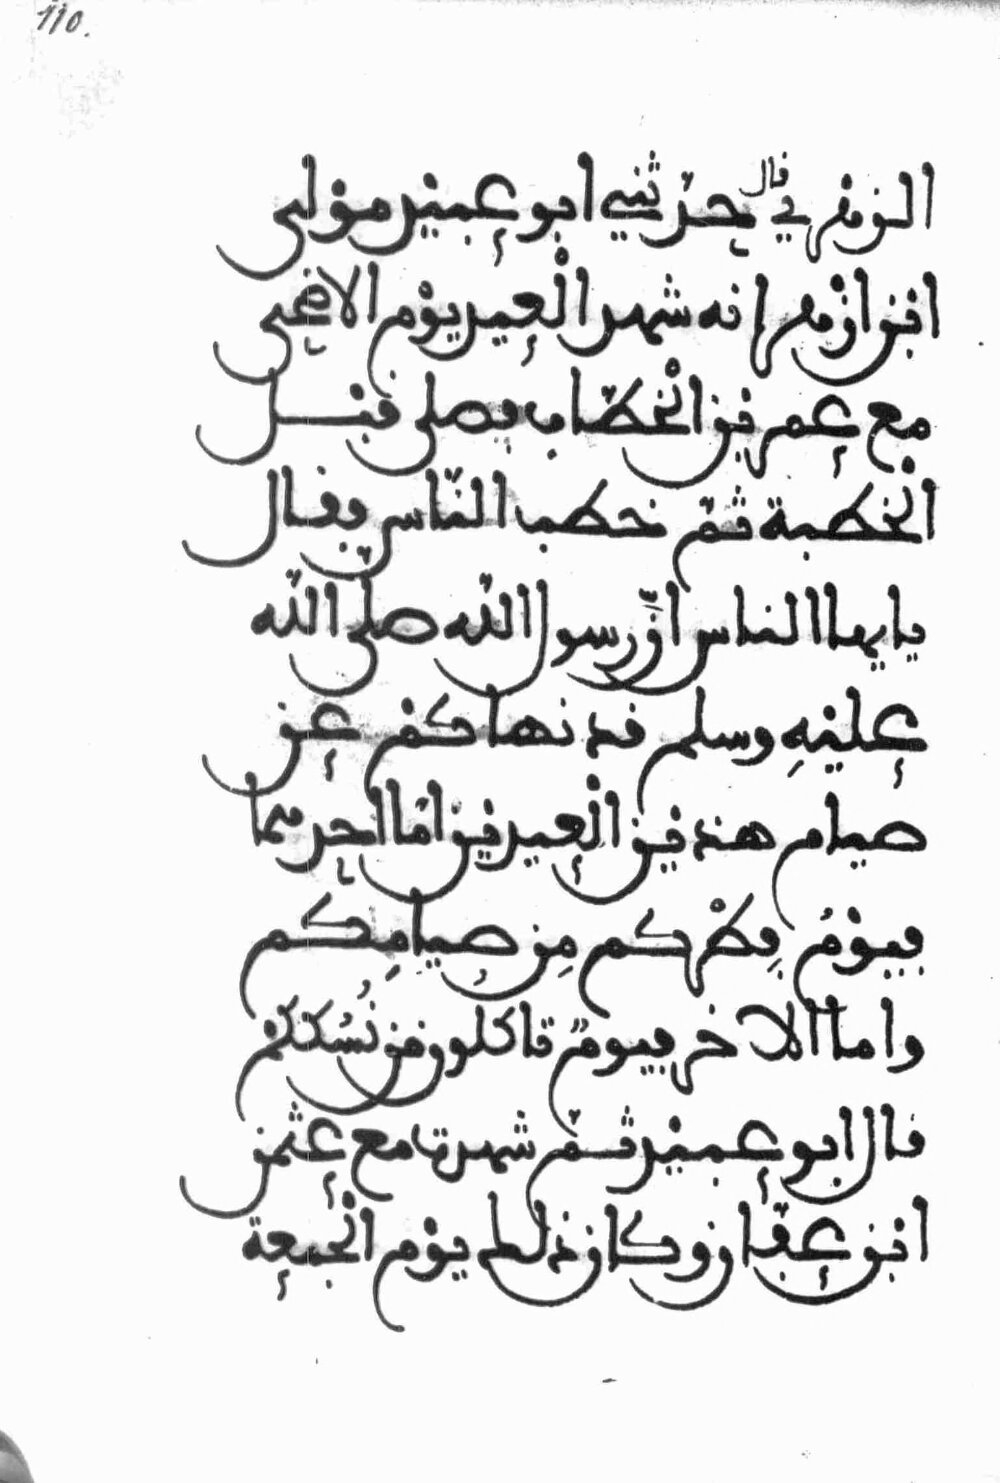 110.
الزهري قال حدثني ابو عبيد مولى
ابن ازهر انه شهد العيد يوم الاضحى
مع عمر بن الخطاب فصلى قبل
الخطبة ثم خطب الناس فقال
يايها الناس ان رسول الله صلى الله
عليه وسلم قد نهاكم عن
صيام هذين العيدين اما احدهما
فيوم فطركم من صيامكم
واما الاخر فيوم تاكلون من نسككم
قال ابو عبيد ثم شهدت مع عثمن
ابن عفان وكان ذلك يوم الجمعة